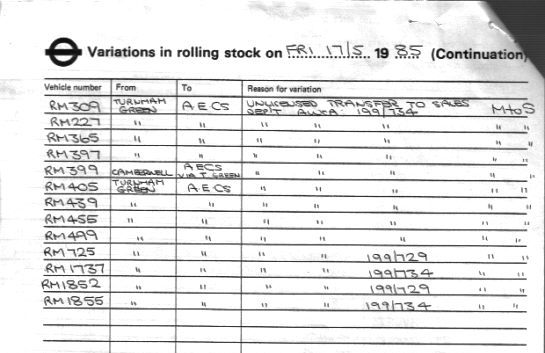 Variations in rolling stock on FRI 17/5 1985 (Continuation)
Vehicle number From To Reason for variation
RM309 TURNHAM GREEN AECS UNLICENSED TRANSFER TO SALES DEP'T 199/734 M to S
RM227 " " " " " " "
RM365 " " " " " " "
RM397 " " " " " " "
RM399 CAMBERWELL AECS VIA T. GREEN " " " " "
RM405 TURNHAM GREEN AECS " " " " "
RM439 " " " " " " "
RM455 " " " " " " "
RM499 " " " " " " "
RM725 " " " " 199/729 " "
RM1737 " " " " 199/734 " "
RM1852 " " " " 199/729 " "
RM1855 " " " " 199/734 " "